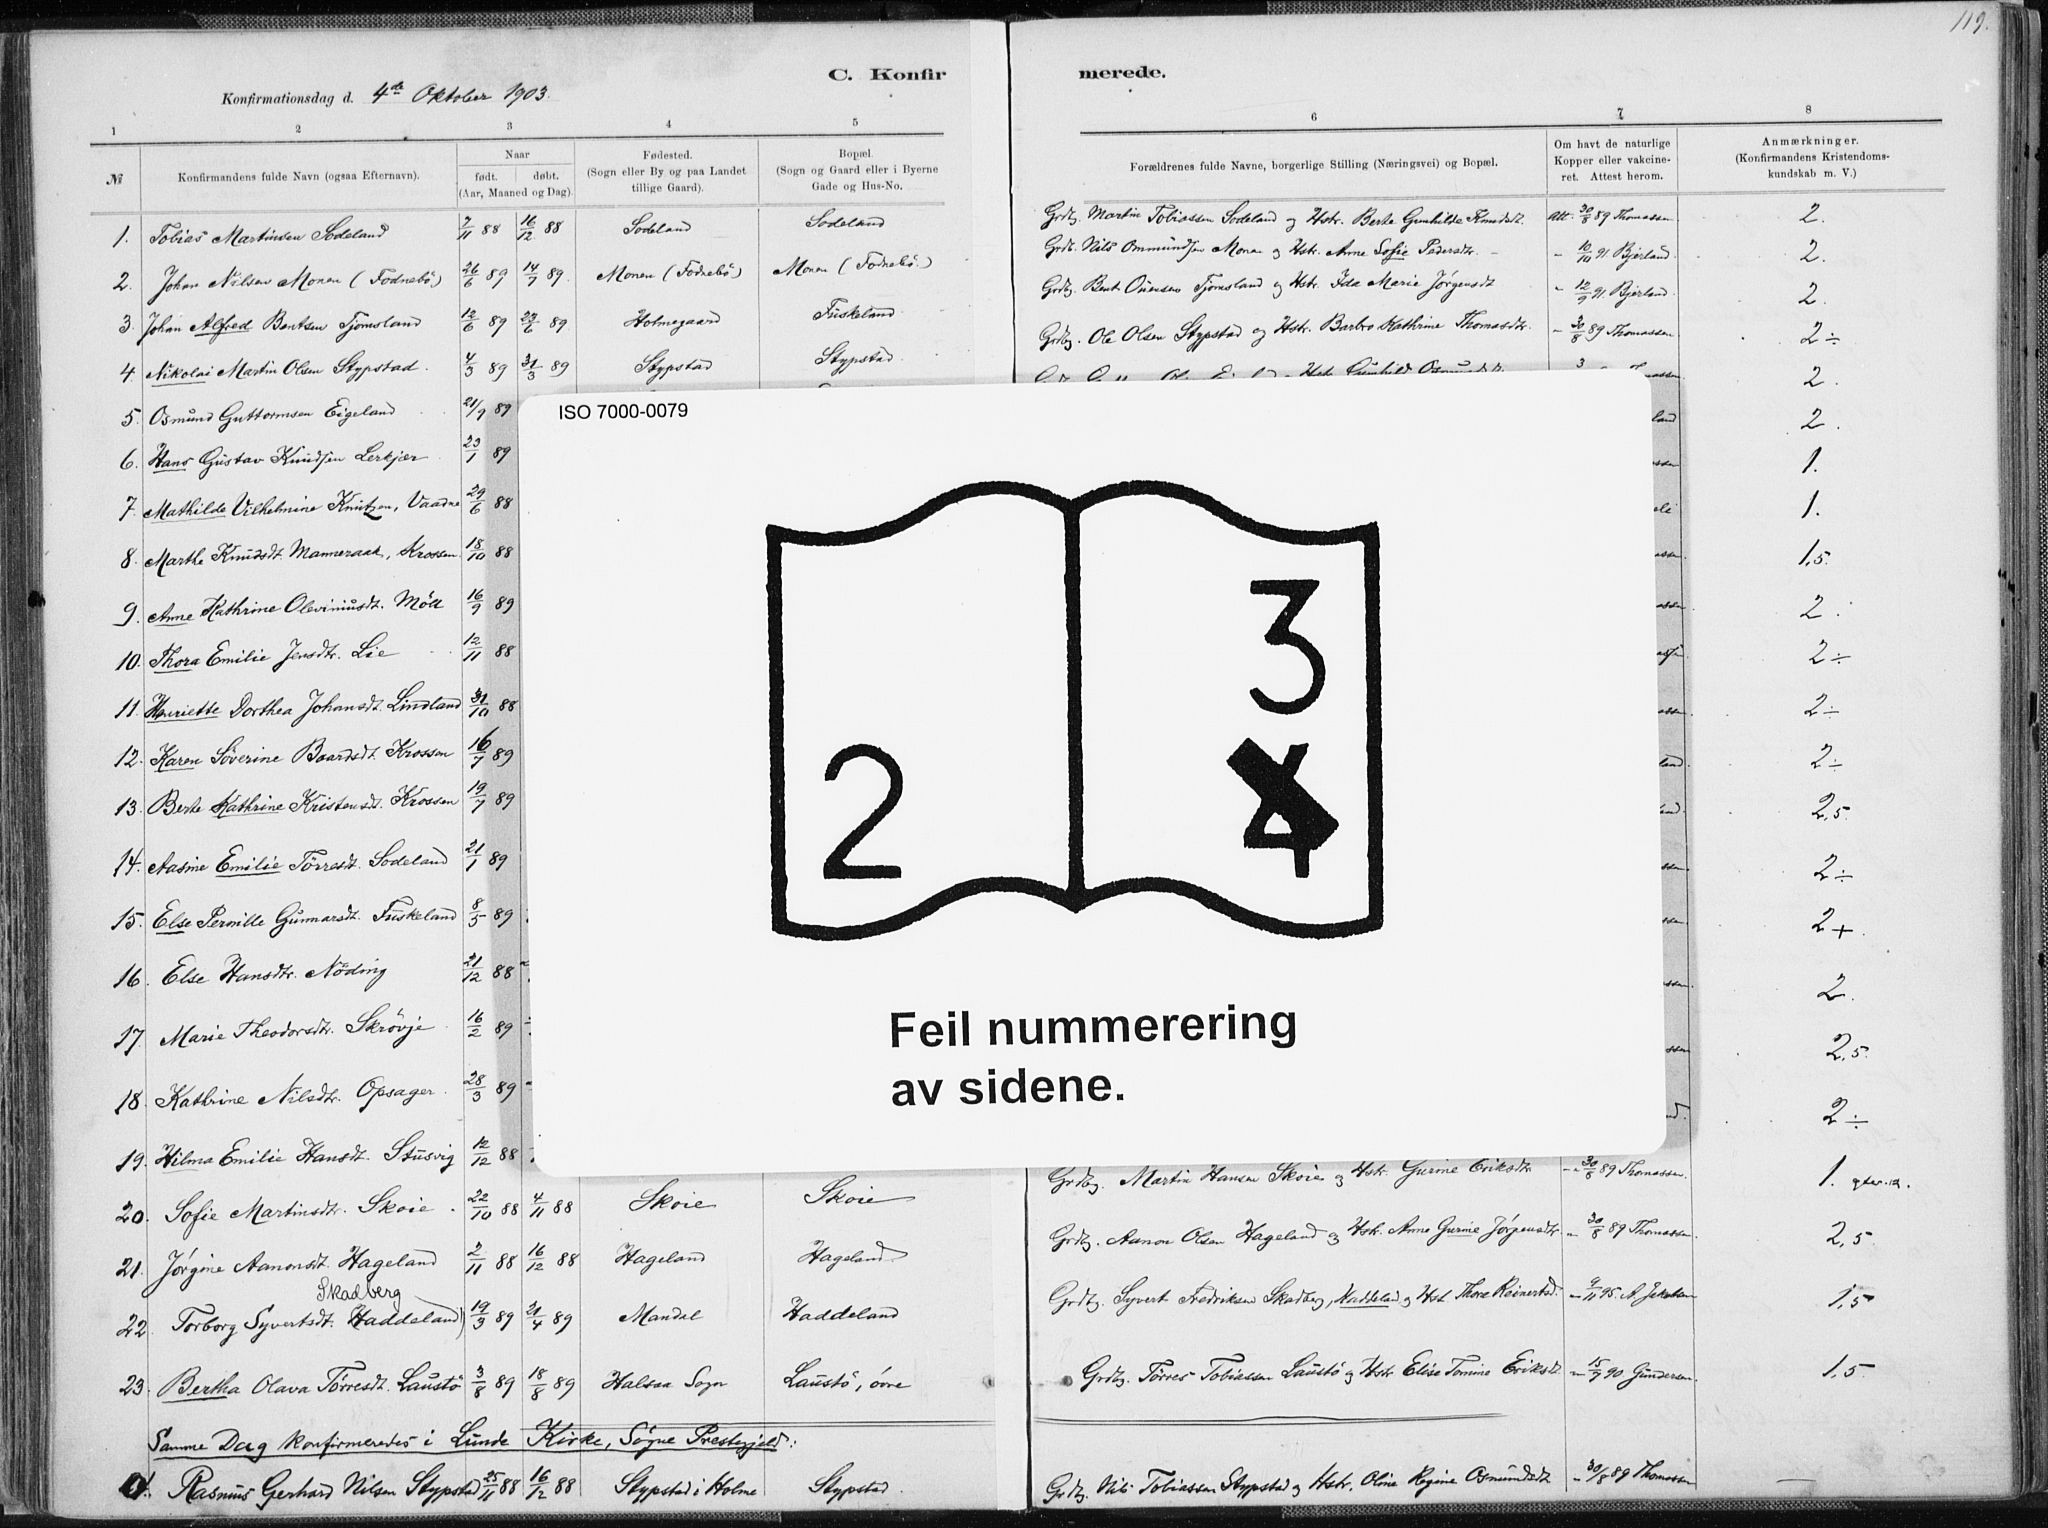 119.
C. Konfirmerede.
Konfirmationsdag d. 4de Oktober 1903.
1 2 3 4 5 6 7 8
№ Konfirmandens fulde Navn (ogsaa Efternavn). Naar født. døbt. (Aar, Maaned og Dag). Fødested. (Sogn eller By og paa Landet tillige Gaard). Bopæl. (Sogn og Gaard eller i Byerne Gade og Hus-No. Forældrenes fulde Navne, borgerlige Stilling (Næringsvei) og Bopæl. Om havt de naturlige Kopper eller vakcineret. Attest herom. Anmærkninger. (Konfirmandens Kristendomskundskab m. V.)
1. Tobias Martinsen Sodeland 7/11 88 16/12 88 Sodeland Sodeland Grdbg. Martin Tobiassen Sodeland og Hstr. Berte Gunhilde Knudsdt. Att. 30/8 89 Thomassen 2.
2. Johan Nilsen Monen (Fodnebö) 26/6 89 14/7 89. Monen (Fodnebö) Monen (Fodnebö.) Grdb. Nils Ommundsen Monen og Hstr. Anne Sofie Pedersdtr. - 10/10 91. Bjerland 2.
3. Johan Alfred Bentsen Tjomsland 12/6 89 23/6 89 Holmegaard Fuskeland Grdbg. Bent Ouensen Tjomsland og Hstr. Ida Marie Jørgensdt - 12/9 91. Bjerland. 2.
4. Nikolai Martin Olsen Stypstad. 4/3 89 31/3 89 Stypstad Stypstad. Grdbg. Ole Olsen Stypstad og Hstr. Barbro Kathrine Thomasdtr. - 30/8 89 Thomassen 2÷
5. Osmund Guttormsen Eigeland 21/9 89 2.
6. Hans Gustav Knudsen Lerkjær 23/1 89 2.
7. Mathilde Vilhelmine Knutzen, Vaadne 29/6 88 1.
8. Marthe Knudsdt. Manneraak, Krossen 18/10 88 1.
9. Anne Kathrine Oleviniusdt. Möll 16/9 89 1,5.
10. Thora Emilie Jensdtr. Lie 12/11 88 2.
11. Henriette Dorthea Johansdt. Lindland 31/10 88 2÷
12. Karen Söverine Baardsdt. Krossen 16/7 89 2÷
13. Berte Kathrine Kristensdt. Krossen 19/7 89 2÷
14. Aasine Emilie Törresdt. Sodeland 21/1 89 2,5.
15. Else Pernille Gunnarsdt. Fuskeland 8/5 89 2÷
16. Else Hansdtr. Nöding 21/12 88 2+.
17. Marie Theodorsdtr. Skrövje 16/2 89 2.
18. Kathrine Nilsdtr. Opsager 28/3 89 2,5.
19. Hilma Emilie Hansdt. Stusvig 12/12 88 2÷
ISO 7000-0079
2
3
4
Feil nummerering
av sidene.
20. Sofie Martinsdtr. Skoie. 22/10 88 4/11 88 Skoie Skoie Grdbg. Martin Hansen Skoie og Hstr. Gurine Eriksdtr - 30/8 89 Thomassen. 1.
21. Jørgine Aanonsdt. Hageland 2/11 88 16/12 88 Hageland Hageland Grdbg. Aanon Olsen Hageland og Hstr. Anne Gurine Jørgensdtr. - 30/8 89 Thomassen. 2,5
Skadberg
22. Torborg Syvertsdt. Haddeland) 19/3 89 21/4 89 Mandal Haddeland Grdbg. Syvert Fredriksen Skadberg, Haddeland og Hst. Thora Reinertsd. - 9/11 95. A. Jakobsen 1,5
23. Bertha Olava Törresdt. Laustö 3/8 89 18/8 89 Halsaa Sogn Laustö, övre Grdbg. Törres Tobiassen Laustö og Hstr. Elise Tomine Eriksdt. - 15/7 90 Gundersen 1,5.
Samme Dag konfirmeredes i Lunde Kirke, Søgne Prestegjeld:
1. Rasmus Gerhard Nilsen Stypstad 25/11 88 16/12 88 Stypstad i Holme Stypstad. Grdbg. Nils Tobiassen Stypstad og Hstr. Oline Regine Osmundsdt - 30/8 89 Thomassen —